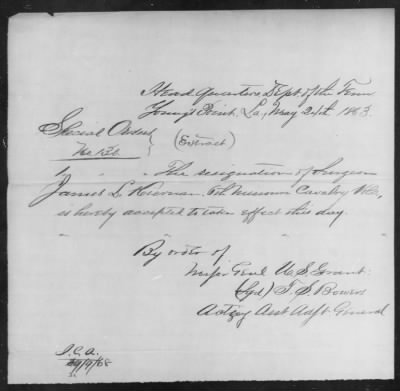 Head Quarters Dept of the Tenn
Young's Point, La, May 24th 1863.
Special Orders
(Extract)
No 131.
The resignation of Surgeon
James L. Kiernan, 6th Missouri Cavalry Vols,
is hereby accepted to take effect this day.
By order of
Major Genl U. S. Grant.
(Sgd) T. S. Bowers
Acting Asst Adjt General
J.C.A.
/9/68